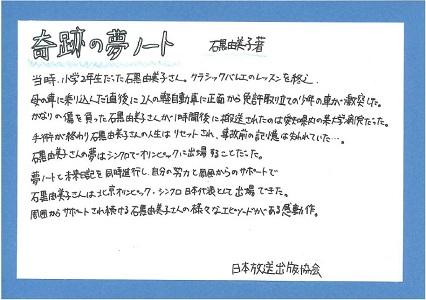 奇跡の夢ノート 石黒由美子著
当時、小学2年生だった石黒由美子さん。クラシックバレエのレッスンを終え、
母の車に乗り込んだ直後に2人の軽自動車に正面から免許取り立ての少年の車が激突した。
かなりの傷を負った石黒由美子さんが1時間後に搬送されたのは愛知県内の某大学病院だった。
手術が終わり石黒由美子さんの人生はリセットされ、事故前の記憶は失われていた…。
石黒由美子さんの夢はシンクロでオリンピックに出場することだった。
夢ノートと未来日記を同時進行し、自分の努力と周囲からのサポートで
石黒由美子さんは北京オリンピック・シンクロ日本代表として出場できた。
周囲からサポートされ続ける石黒由美子さんの様々なエピソードがある感動作。
日本放送出版協会